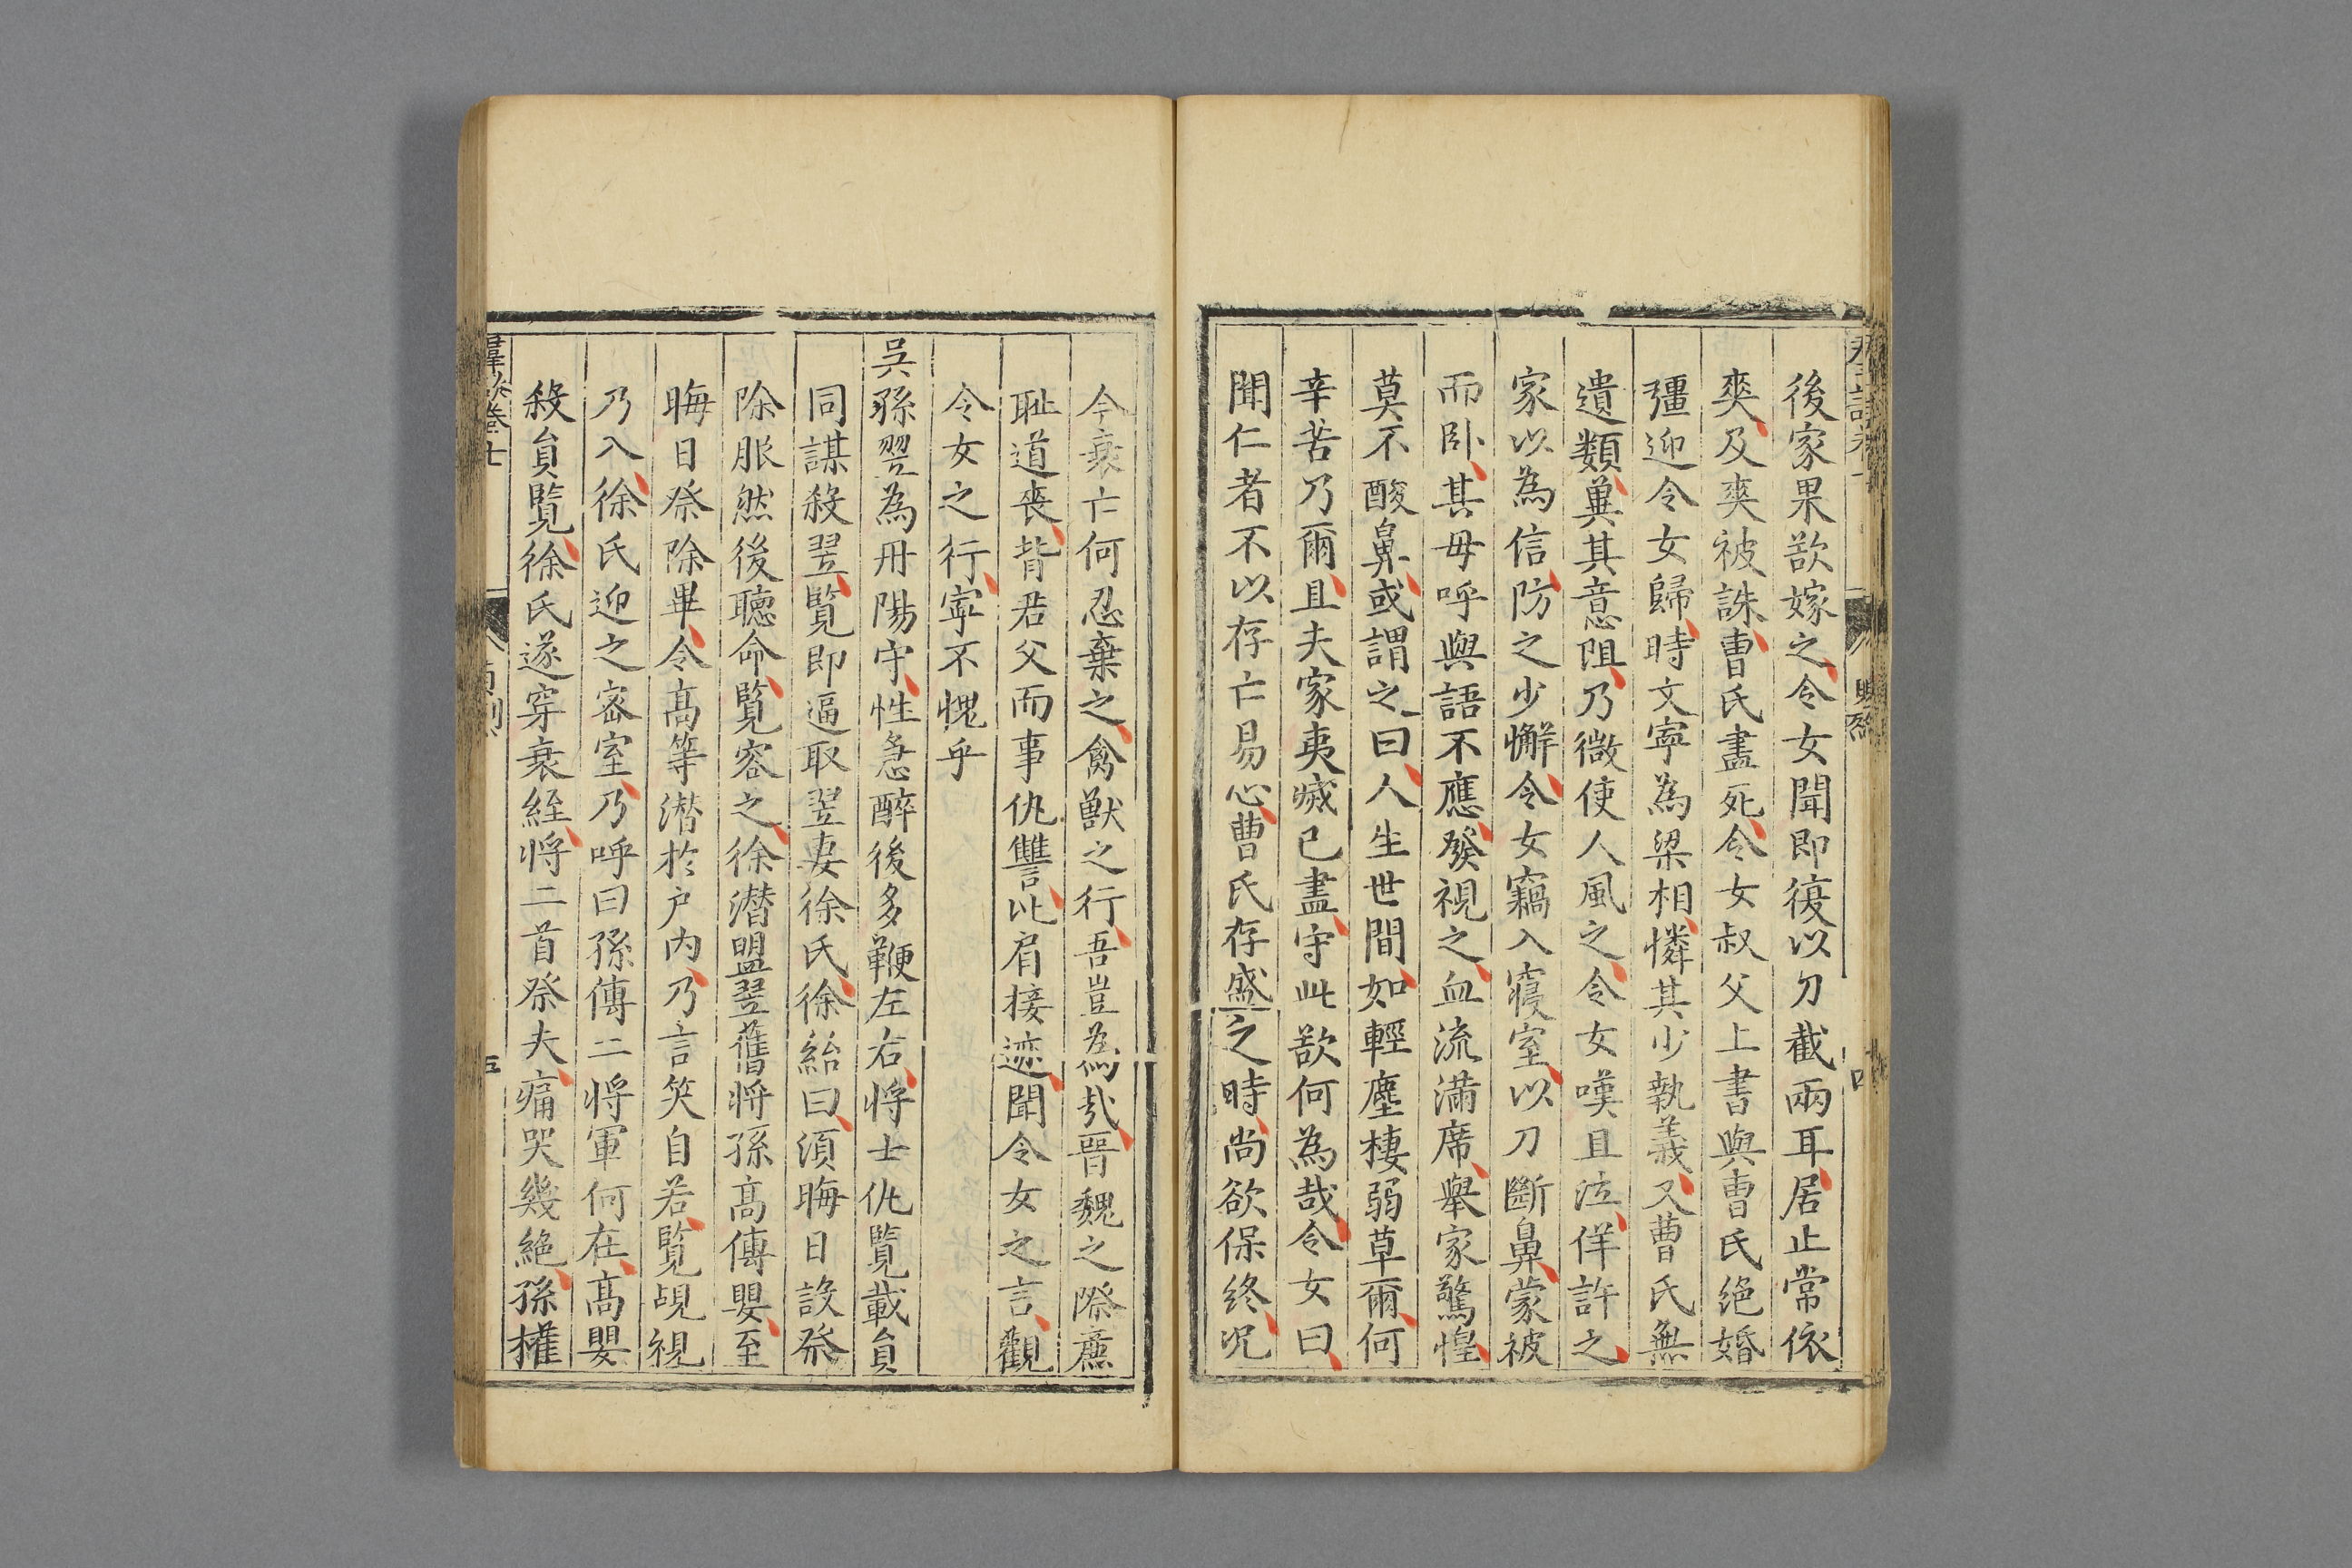 後家果欲嫁之令女聞即復以刀截兩耳居止常依
爽及爽被誅曹氏盡死令女叔父上書與曹氏絕婚
彊迎令女歸時文寧為梁相憐其少執義又曹氏無
遺類冀其意阻乃微使人風之令女嘆且泣佯許之
家以為信防之少懈令女竊入寢室以刀斷鼻蒙被
而卧其母呼與語不應發視之血流滿席舉家驚惶
莫不酸鼻或謂之曰人生世間如輕塵棲弱草爾何
辛苦乃爾且夫家夷滅已盡守此欲何為哉令女曰
聞仁者不以存亡易心曹氏存盛之時尚欲保终况
今衰亡何忍棄之禽獸之行吾豈為哉晉魏之際廉
耻道喪背君父而事仇讐比肩接迹聞令女之言觀
令女之行寧不愧乎
吳孫翊為丹陽守性急醉後多鞭左右將士仇覽載員
同謀殺翌覽即逼取翌妻徐氏徐紿曰須晦日設祭
除服然後聽命覽容之徐潛盟翌舊將孫高傅嬰至
晦日祭除畢令高等潛於户内乃言笑自若覽覘視
乃入徐氏迎之密室乃呼曰孫傅二將軍何在高嬰
殺員覽徐氏遂穿衰絰將二首祭夫痛哭幾絕孫權